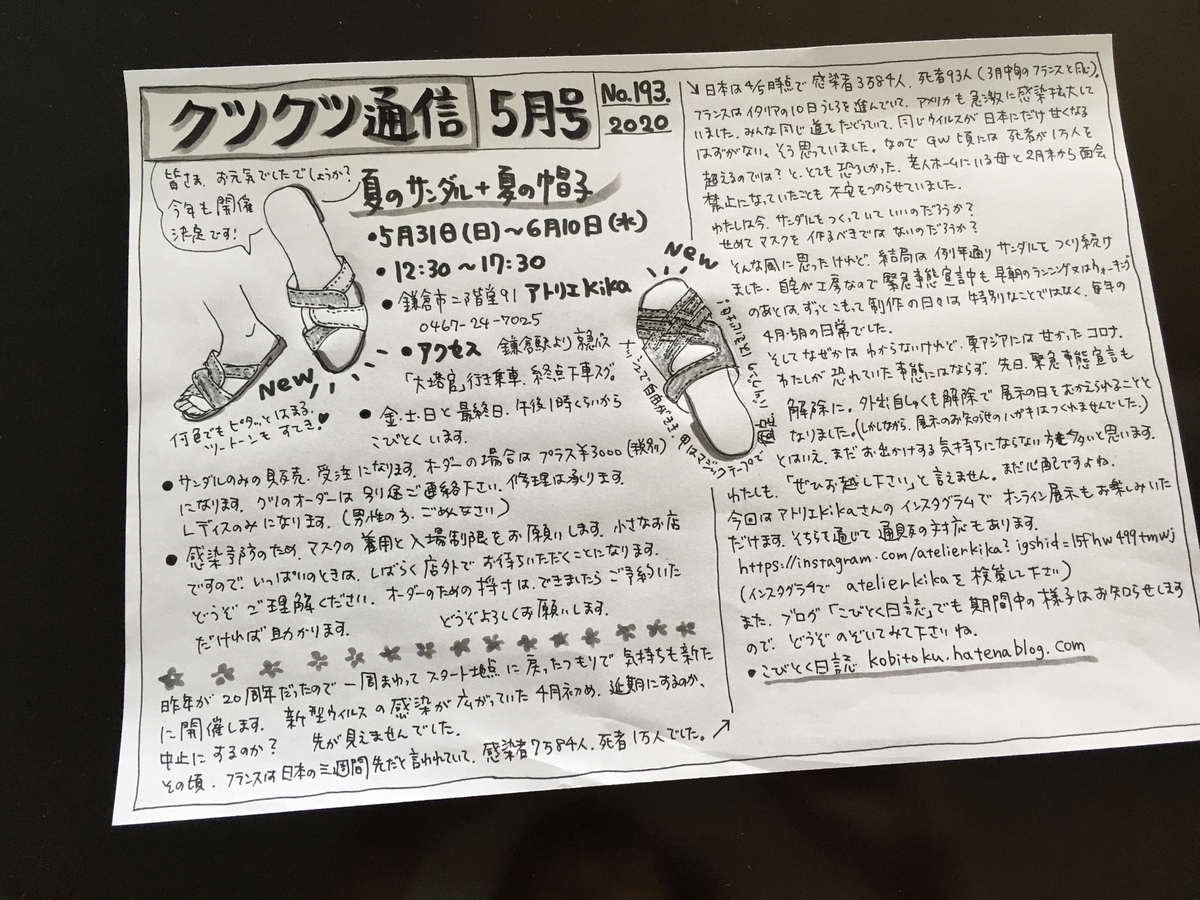 クツクツ通信 5月号
No.193.
2020
皆さま、お元気でしたでしょうか?
今年も開催
決定です!
夏のサンダル+夏の帽子
•5月31日(日)〜6月10日(水)
•12:30〜17:30
•鎌倉市二階堂91 アトリエkika
0467-24-7025
•アクセス 鎌倉駅より京急バス
「大塔宮」行き乗車、終点下車スグ。
•金・土・日と最終日、午後1時くらいから
こびとくいます。
New
何色でもピタッとはまる。
ツートーンもすてき♥
New
•サンダルのみの販売、受注になります。オーダーの場合はプラス¥3000(税別)
になります。クツのオーダーは別途ご連絡下さい。修理は承ります。
レディスのみになります。(男性の方、ごめんなさい)
•感染予防のため、マスクの着用と入場制限をお願いします。小さなお店
ですので、いっぱいのときは、しばらく店外でお待ちいただくことになります。
どうぞご理解ください。オーダーのための採寸は、できましたらご予約いた
だければ助かります。 どうぞよろしくお願いします。
昨年が20周年だったので一周まわってスタート地点に戻ったつもりで気持ちも新た
に開催します。新型ウイルスの感染が広がっていた4月初め、延期にするのか、
中止にするのか? 先が見えませんでした。
その頃、フランスは日本の三週間先だと言われていて、感染者7万84人、死者1万人でした。↗
↘日本は4/5時点で感染者3584人、死者93人(3月中旬のフランスと同じ)。
フランスはイタリアの10日うしろを進んでいて、アメリカも急激に感染拡大して
いました。みんな同じ道をたどっていて、同じウイルスが日本にだけ甘くなる
はずがない。そう思っていました。なのでGW頃には死者が1万人を
超えるのでは?と、とても恐ろしかった。老人ホームにいる母と2月末から面会
禁止になっていたことも不安をつのらせていました。
わたしは今、サンダルをつくっていていいのだろうか?
せめてマスクを作るべきではないのだろうか?
そんな風に思ったけれど、結局は例年通りサンダルをつくり続け
ました。自宅が工房なので緊急事態宣言中も早朝のランニング又はウォーキング
のあとは、ずっとこもって制作の日々は特別なことではなく、毎年の
4月・5月の日常でした。
そしてなぜかはわからないけれど、東アジアには甘かったコロナ。
わたしが恐れていた事態にはならず、先日、緊急事態宣言も
解除に。外出自しゅくも解除で展示の日をむかえられることと
なりました。(しかしながら、展示のお知らせのハガキはつくれませんでした。)
とはいえ、まだお出かけする気持ちにならない方も多いと思います。
わたしも、「ぜひお越し下さい」と言えません。まだ心配ですよね。
今回はアトリエkikaさんのインスタグラムでオンライン展示もお楽しみいた
だけます。そちらを通じて通販の対応もあります。
https://instagram.com/atelierkika?igshid=15fhw499tmwj
(インスタグラムで atelierkikaを検索して下さい)
また、ブログ「こびとく日誌」でも期間中の様子はお知らせします
ので、どうぞのぞいてみて下さいね。
•こびとく日誌 kobitoku.hatenablog.com